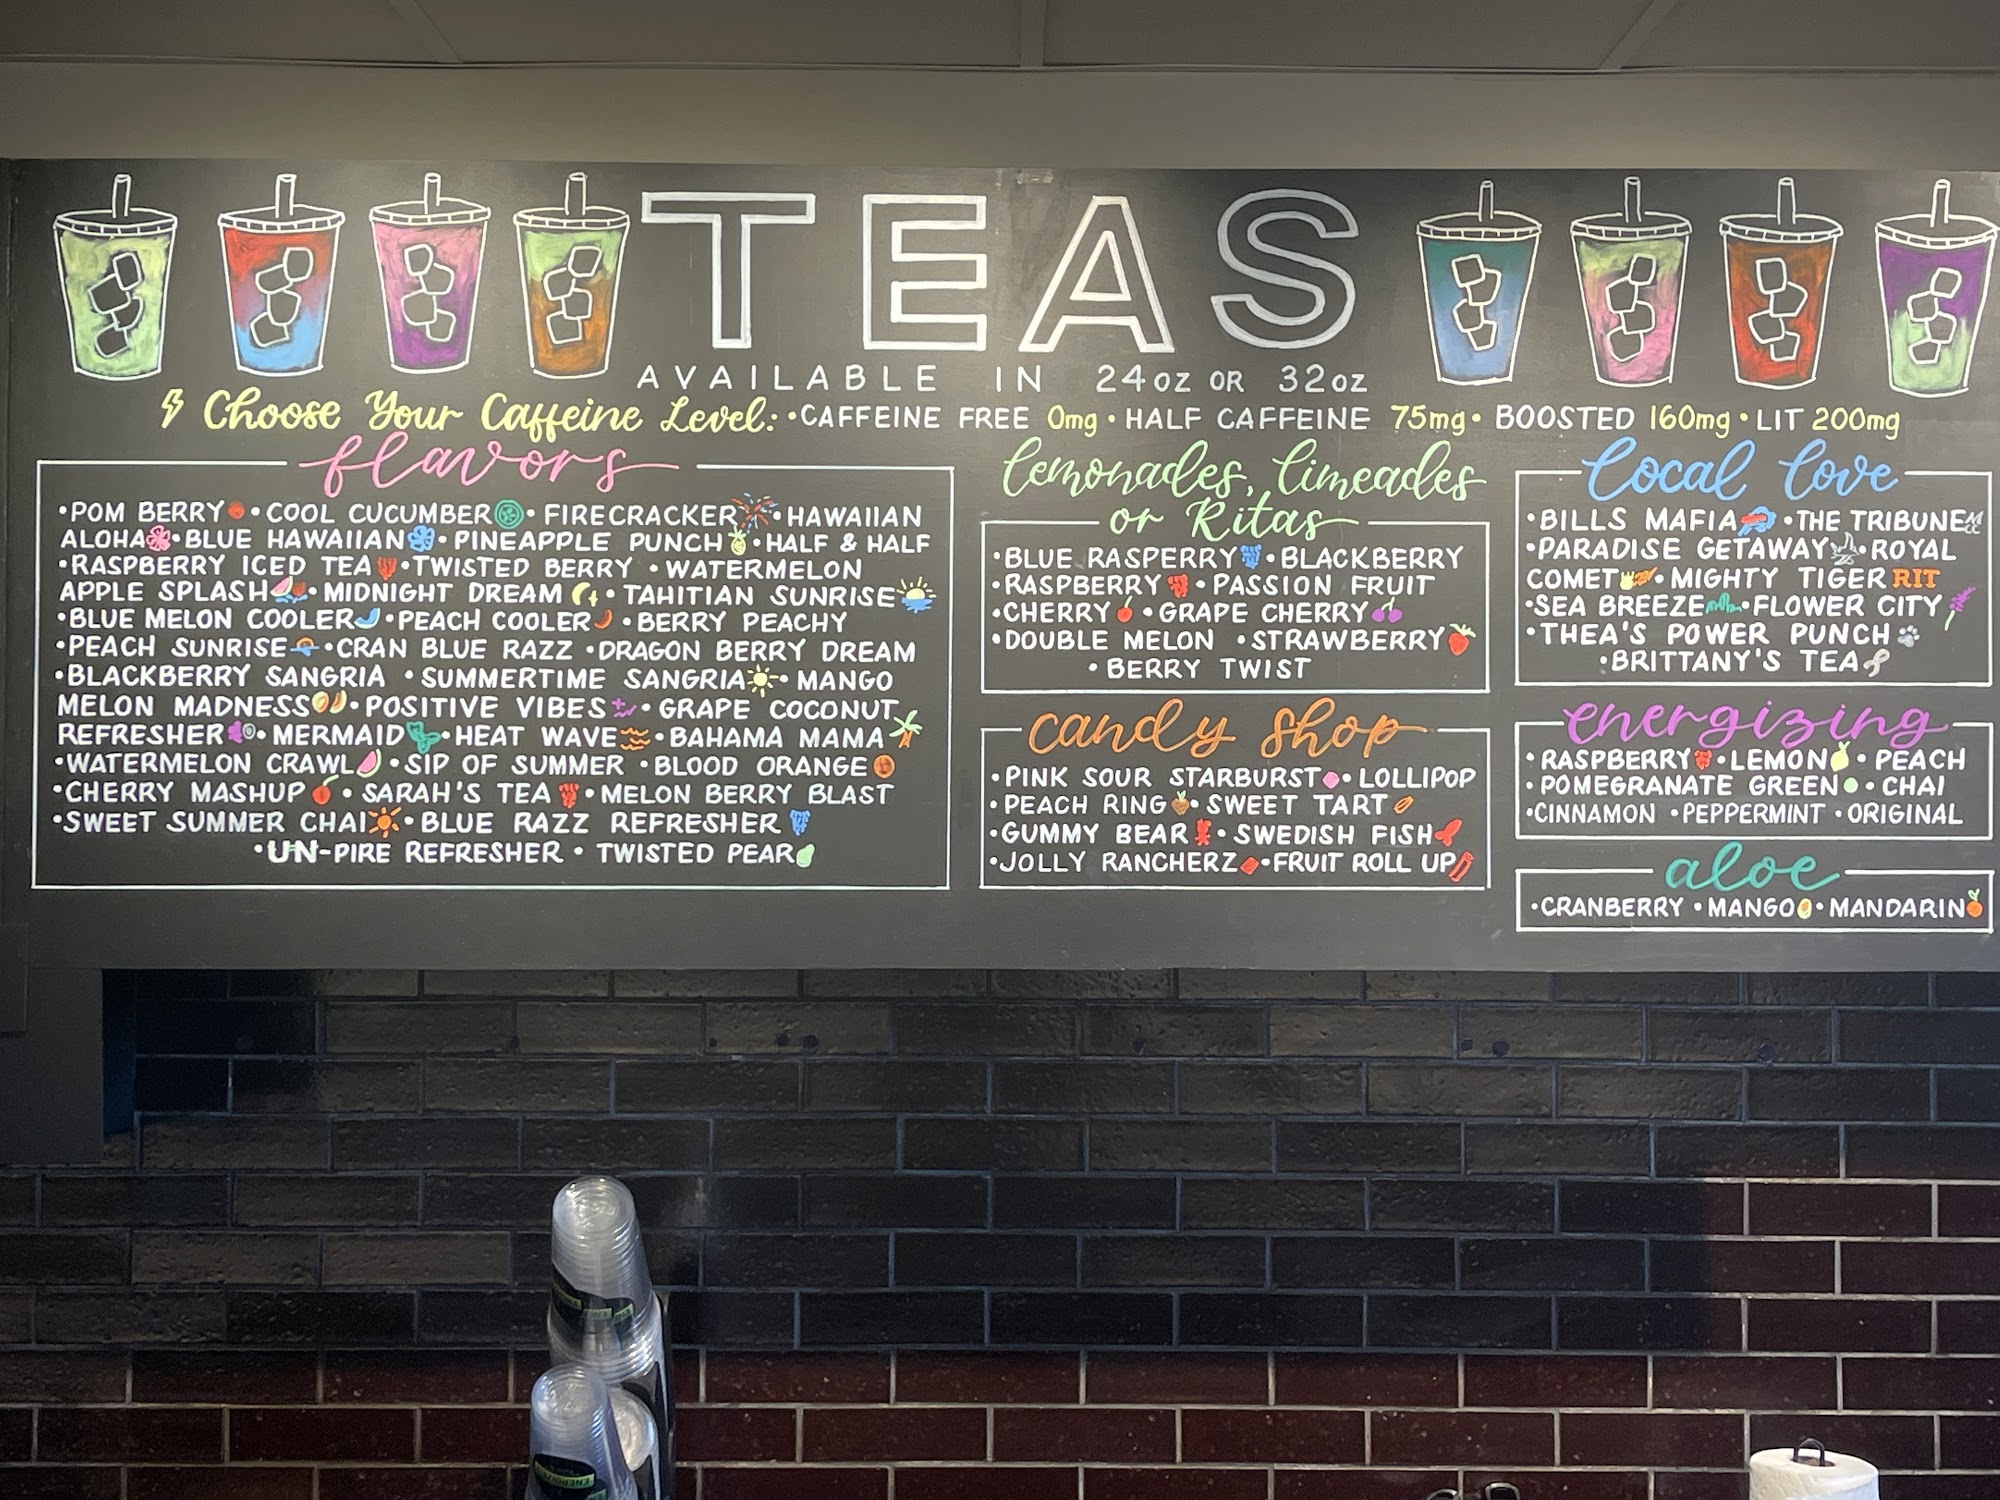 TEAS
AVAILABLE IN 24oz OR 32oz
Choose Your Caffeine Level: •CAFFEINE FREE 0mg • HALF CAFFEINE 75mg • BOOSTED 160mg • LIT 200mg
flavors
•POM BERRY •COOL CUCUMBER •FIRECRACKER •HAWAIIAN
ALOHA •BLUE HAWAIIAN •PINEAPPLE PUNCH •HALF & HALF
•RASPBERRY ICED TEA •TWISTED BERRY •WATERMELON
APPLE SPLASH •MIDNIGHT DREAM •TAHITIAN SUNRISE
•BLUE MELON COOLER •PEACH COOLER •BERRY PEACHY
•PEACH SUNRISE •CRAN BLUE RAZZ •DRAGON BERRY DREAM
•BLACKBERRY SANGRIA •SUMMERTIME SANGRIA •MANGO
MELON MADNESS •POSITIVE VIBES •GRAPE COCONUT
REFRESHER •MERMAID •HEAT WAVE •BAHAMA MAMA
•WATERMELON CRAWL •SIP OF SUMMER •BLOOD ORANGE
•CHERRY MASHUP •SARAH'S TEA •MELON BERRY BLAST
•SWEET SUMMER CHAI •BLUE RAZZ REFRESHER
•UN-PIRE REFRESHER • TWISTED PEAR
lemonades, limeades
or Ritas
•BLUE RASPERRY •BLACKBERRY
•RASPBERRY •PASSION FRUIT
•CHERRY •GRAPE CHERRY
•DOUBLE MELON •STRAWBERRY
•BERRY TWIST
candy shop
•PINK SOUR STARBURST •LOLLIPOP
•PEACH RING •SWEET TART
•GUMMY BEAR •SWEDISH FISH
•JOLLY RANCHERZ •FRUIT ROLL UP
local love
•BILLS MAFIA •THE TRIBUNE
•PARADISE GETAWAY •ROYAL
COMET •MIGHTY TIGER RIT
•SEA BREEZE •FLOWER CITY
•THEA'S POWER PUNCH
•BRITTANY'S TEA
energizing
•RASPBERRY •LEMON •PEACH
•POMEGRANATE GREEN •CHAI
•CINNAMON •PEPPERMINT •ORIGINAL
aloe
•CRANBERRY •MANGO •MANDARIN